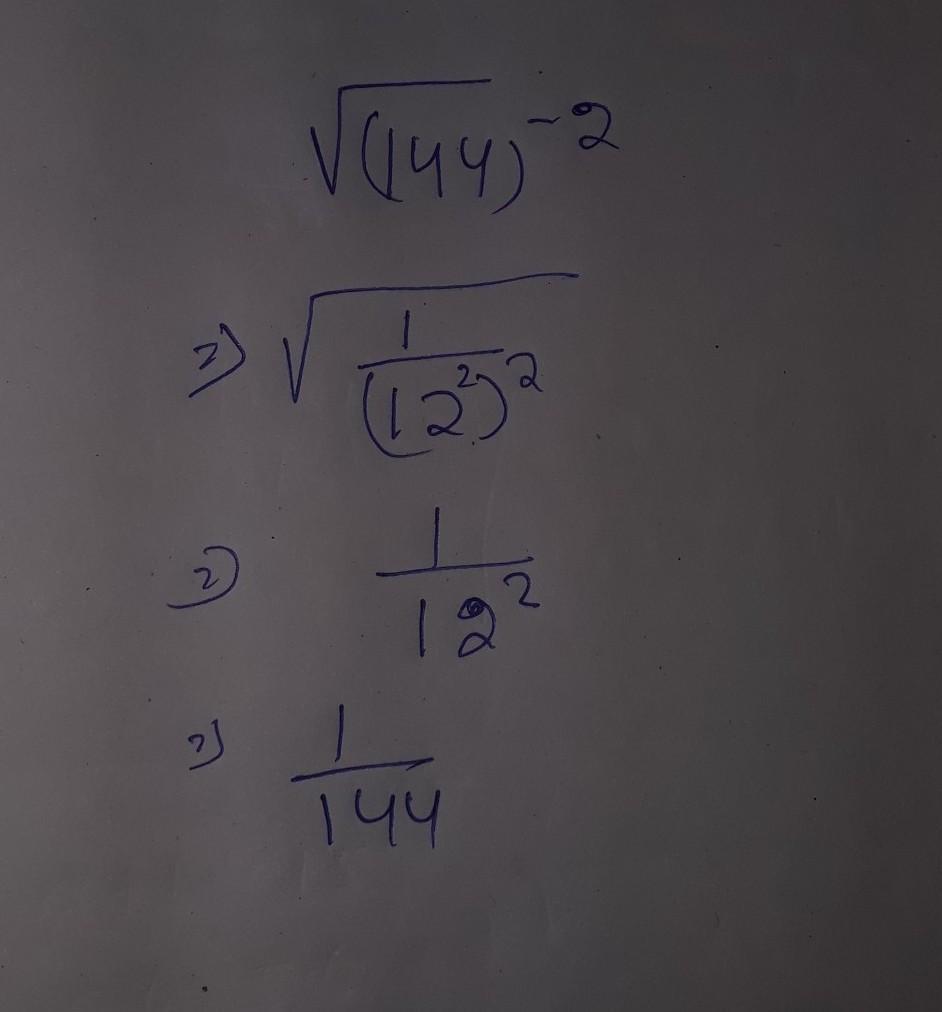 √(144)⁻²
⇒ √(1/(12²)²)
⇒ 1/12²
⇒ 1/144